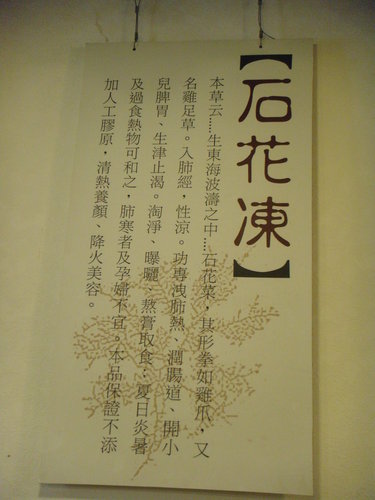 【石花凍】
本草云……生東海波濤之中……石花菜，其形拳如雞爪，又
名雞足草。入肺經，性涼。功專洩肺熱、潤腸道、開小
兒脾胃、生津止渴。淘淨、曝曬、熬膏取食…夏日炎暑
及過食熱物可和之，肺寒者及孕婦不宜。本品保證不添
加人工膠原，清熱養顏、降火美容。